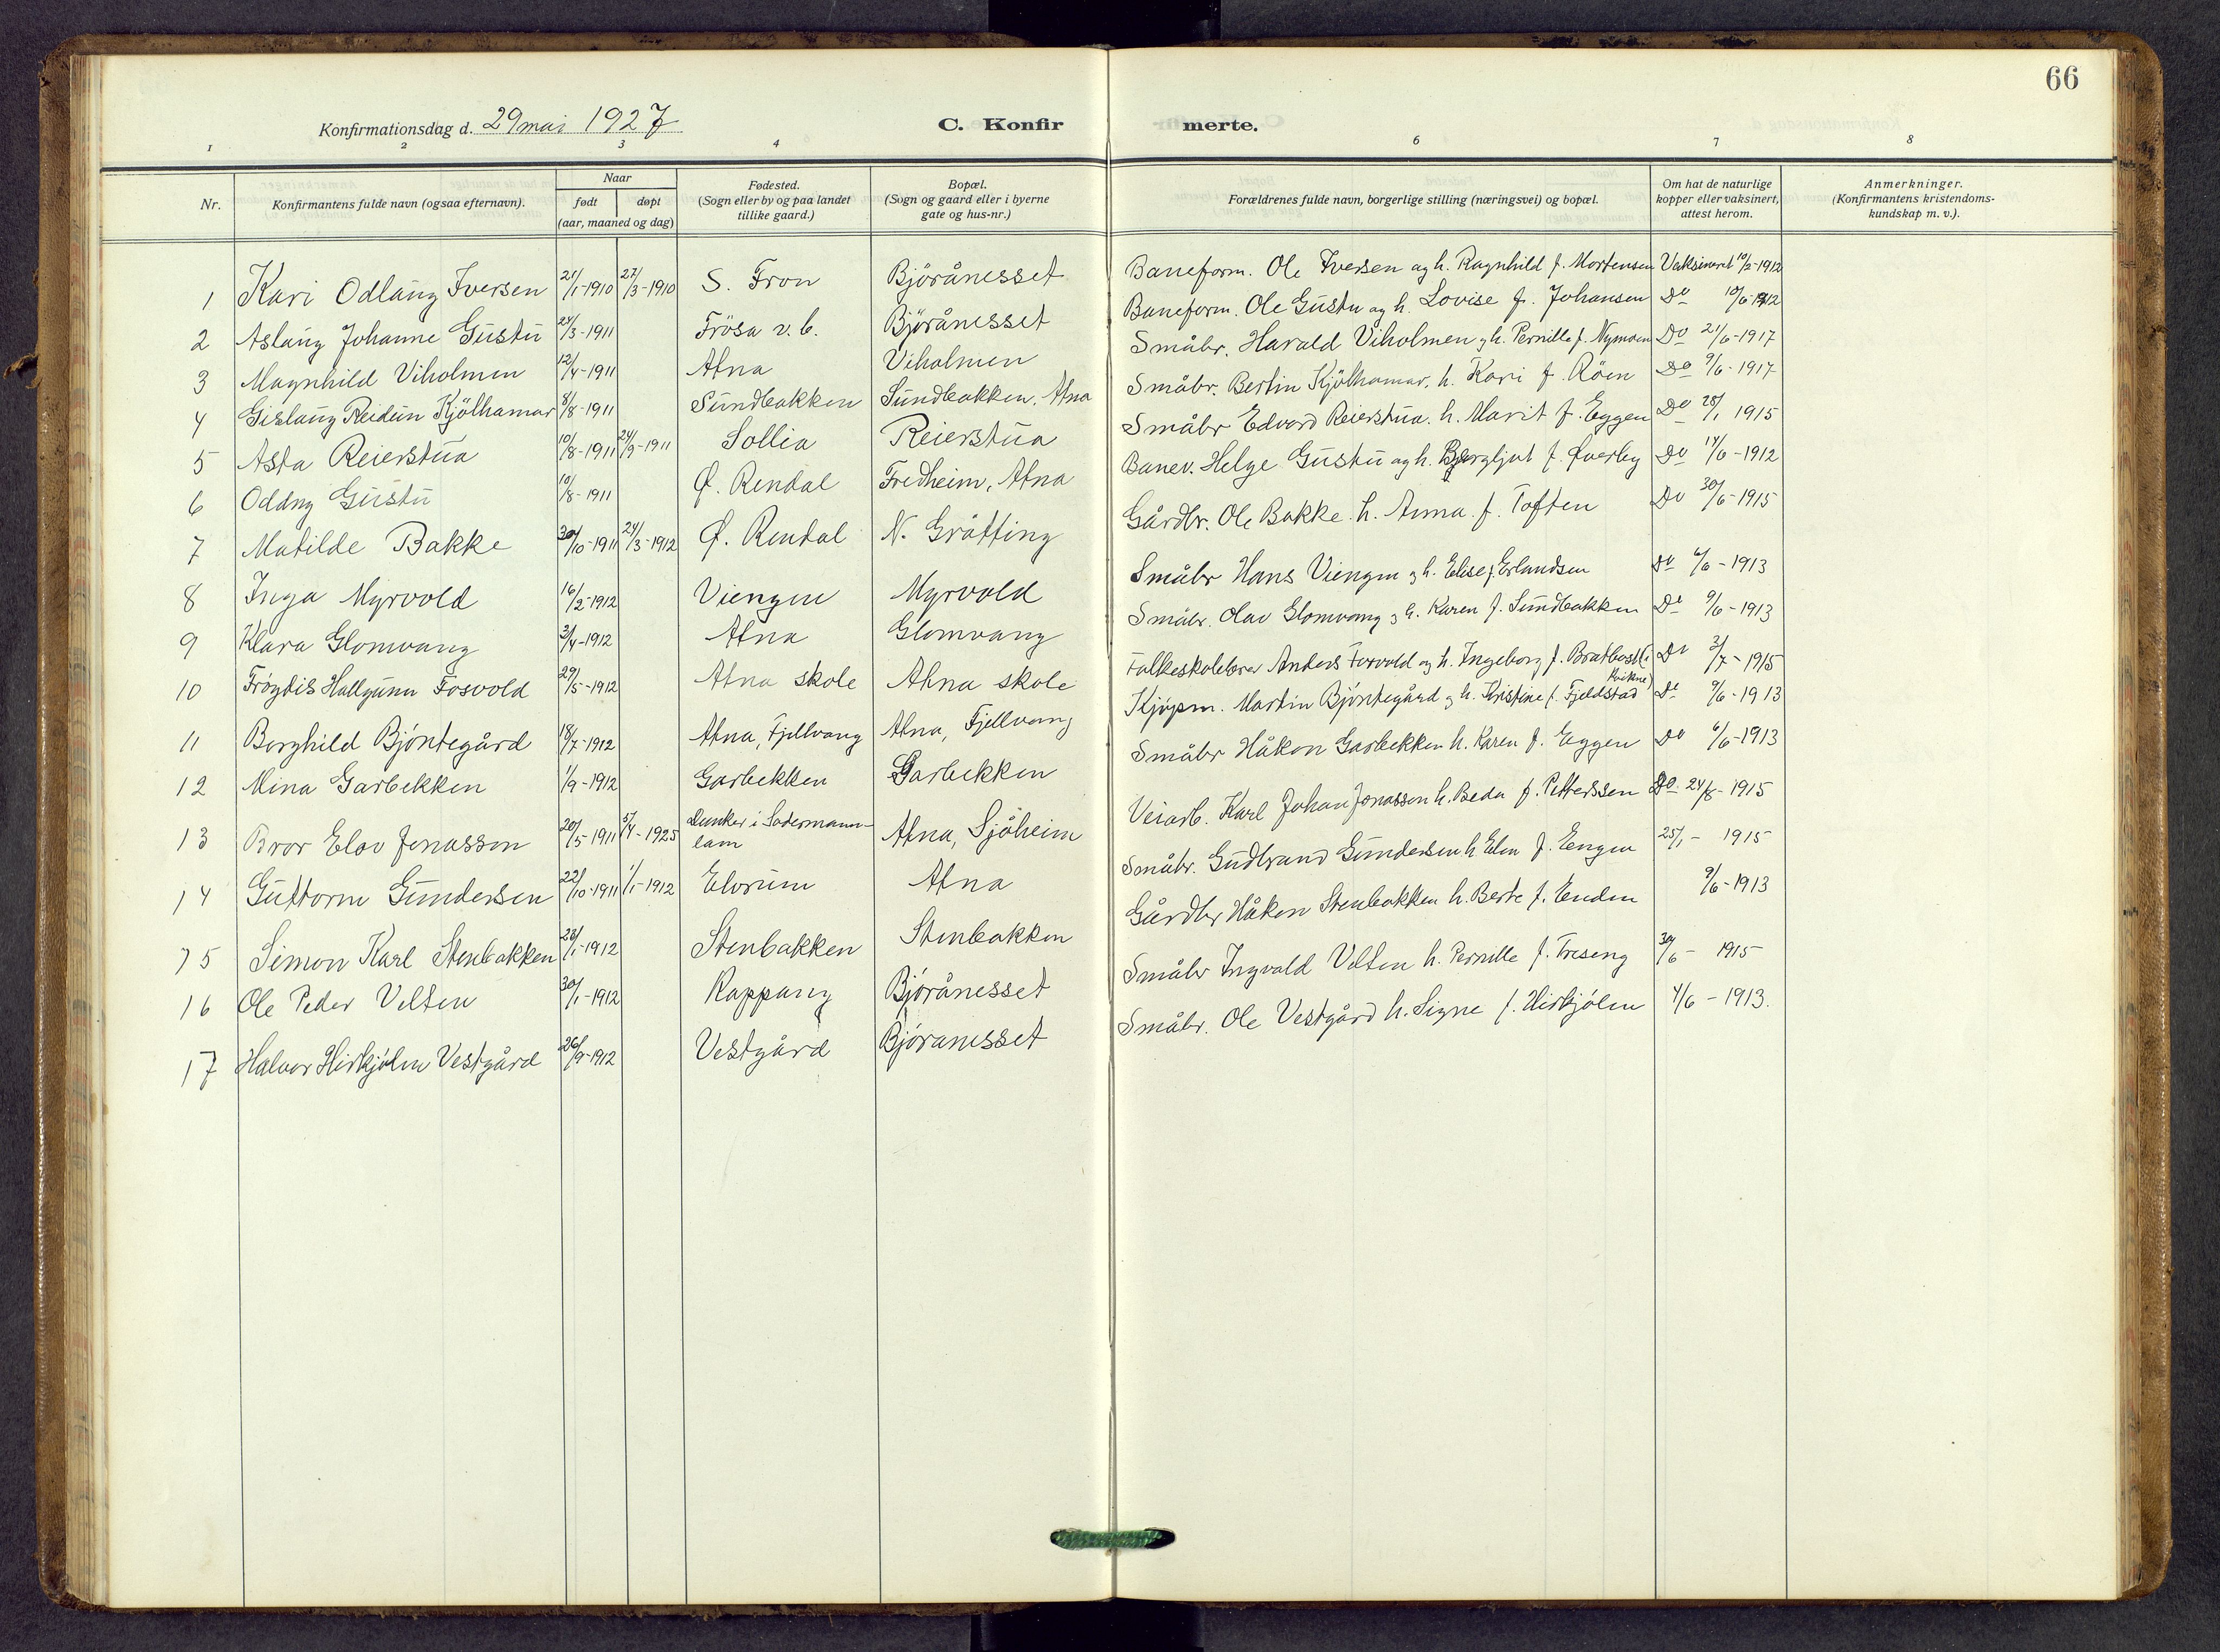 66
Konfirmationsdag d. 29 mai 1927
C. Konfir merte.
1 2 3 4 6 7 8
Nr. Konfirmantens fulde navn (ogsaa efternavn). Naar født døpt (aar, maaned og dag) Fødested. (Sogn eller by og paa landet tillike gaard.) Bopæl. (Sogn og gaard eller i byerne gate og hus-nr.) Forældrenes fulde navn, borgerlige stilling (næringsvei) og bopæl. Om hat de naturlige kopper eller vaksinert, attest herom. Anmerkninger. (Konfirmantens kristendoms-kundskap m. v.).
1 Kari Odlaug Iversen 21/1-1910 27/3-1910 S. Fron Björånesset Baneform. Ole Iversen og h. Ragnhild f. Mortensen Vaksineret 10/2-1912
2 Aslaug Johanne Gustu 24/3-1911 Frösa v. b. Björånesset Baneform. Ole Gustu og h. Lovise f. Johansen Do 10/6-1912
3 Magnhild Viholmen 12/4-1911 Atna Viholmen Småbr. Harald Viholmen og h. Pernille f. Nymoen Do 21/6-1917
4 Gislaug Reidun Kjölhamar 8/8-1911 Sundbakken Sundbakken, Atna Småbr. Bertin Kjölhamar, h. Kari f. Röen Do 9/6-1917
5 Asta Reierstua 10/8-1911 24/9-1911 Sollia Reierstua Småbr Edvard Reierstua. h. Marit f. Eggen Do 28/1 1915
6 Oddny Gustu 10/8-1911 Ø. Rendal Fredheim, Atna Banev. Helge Gustu og h. Bergljot f. Øverby Do 14/6-1912
7 Matilde Bakke 30/10-1911 24/3-1912 Ø. Rendal N. Gråtting Gårdbr. Ole Bakke. h. Anna f. Toften Do 30/6-1915
8 Inga Myrvold 16/2-1912 Viengen Myrvold Småbr Hans Viengen og h. Elise f. Erlandsen Do 6/6-1913
9 Klara Glomvang 3/4-1912 Atna Glomvang Småbr. Olav Glomvang og h. Karen f. Sundbakken Do 9/6-1913
10 Frøydis Hallgunn Fosvold 29/5-1912 Atna skole Atna skole Folkeskolelærer Anders Fosvold og h. Ingeborg f. Bratbost (i Kvikne) Do 3/7-1915
11 Borghild Bjöntegård 18/7-1912 Atna, Fjellvang Atna, Fjellvang Kjöpm. Martin Bjöntegård og h. Kristine f. Fjeldstad Do 9/6-1913
12 Mina Garbekken 1/9-1912 Garbekken Garbekken Småbr Håkon Garbekken h. Karen f. Eggen Do 6/6-1913
13 Bror Elov Jonassen 20/5-1911 5/4-1925 Dunker i Södermannlam Atna, Sjöheim Veiarb. Karl Johan Jonassen h. Beda f. Petterssen Do 24/8-1915
14 Guttorm Gundersen 22/10-1911 1/1-1912 Elvrum Atna Småbr. Gudbrand Gundersen h. Elen f. Engen 25/1-1915
15 Simon Karl Stenbakken 28/1-1912 Stenbakken Stenbakken Gårdbr Håkon Stenbakken h. Berte f. Enden 9/6-1913
16 Ole Peder Velten 30/1-1912 Koppang Björånesset Småbr Ingvald Velten h. Pernille f. Treseng 30/6-1915
17 Halvor Hirkjölen Vestgård 26/9-1912 Vestgård Björanesset Småbr. Ole Vestgård h. Signe f. Hirkjölen 4/6-1913.